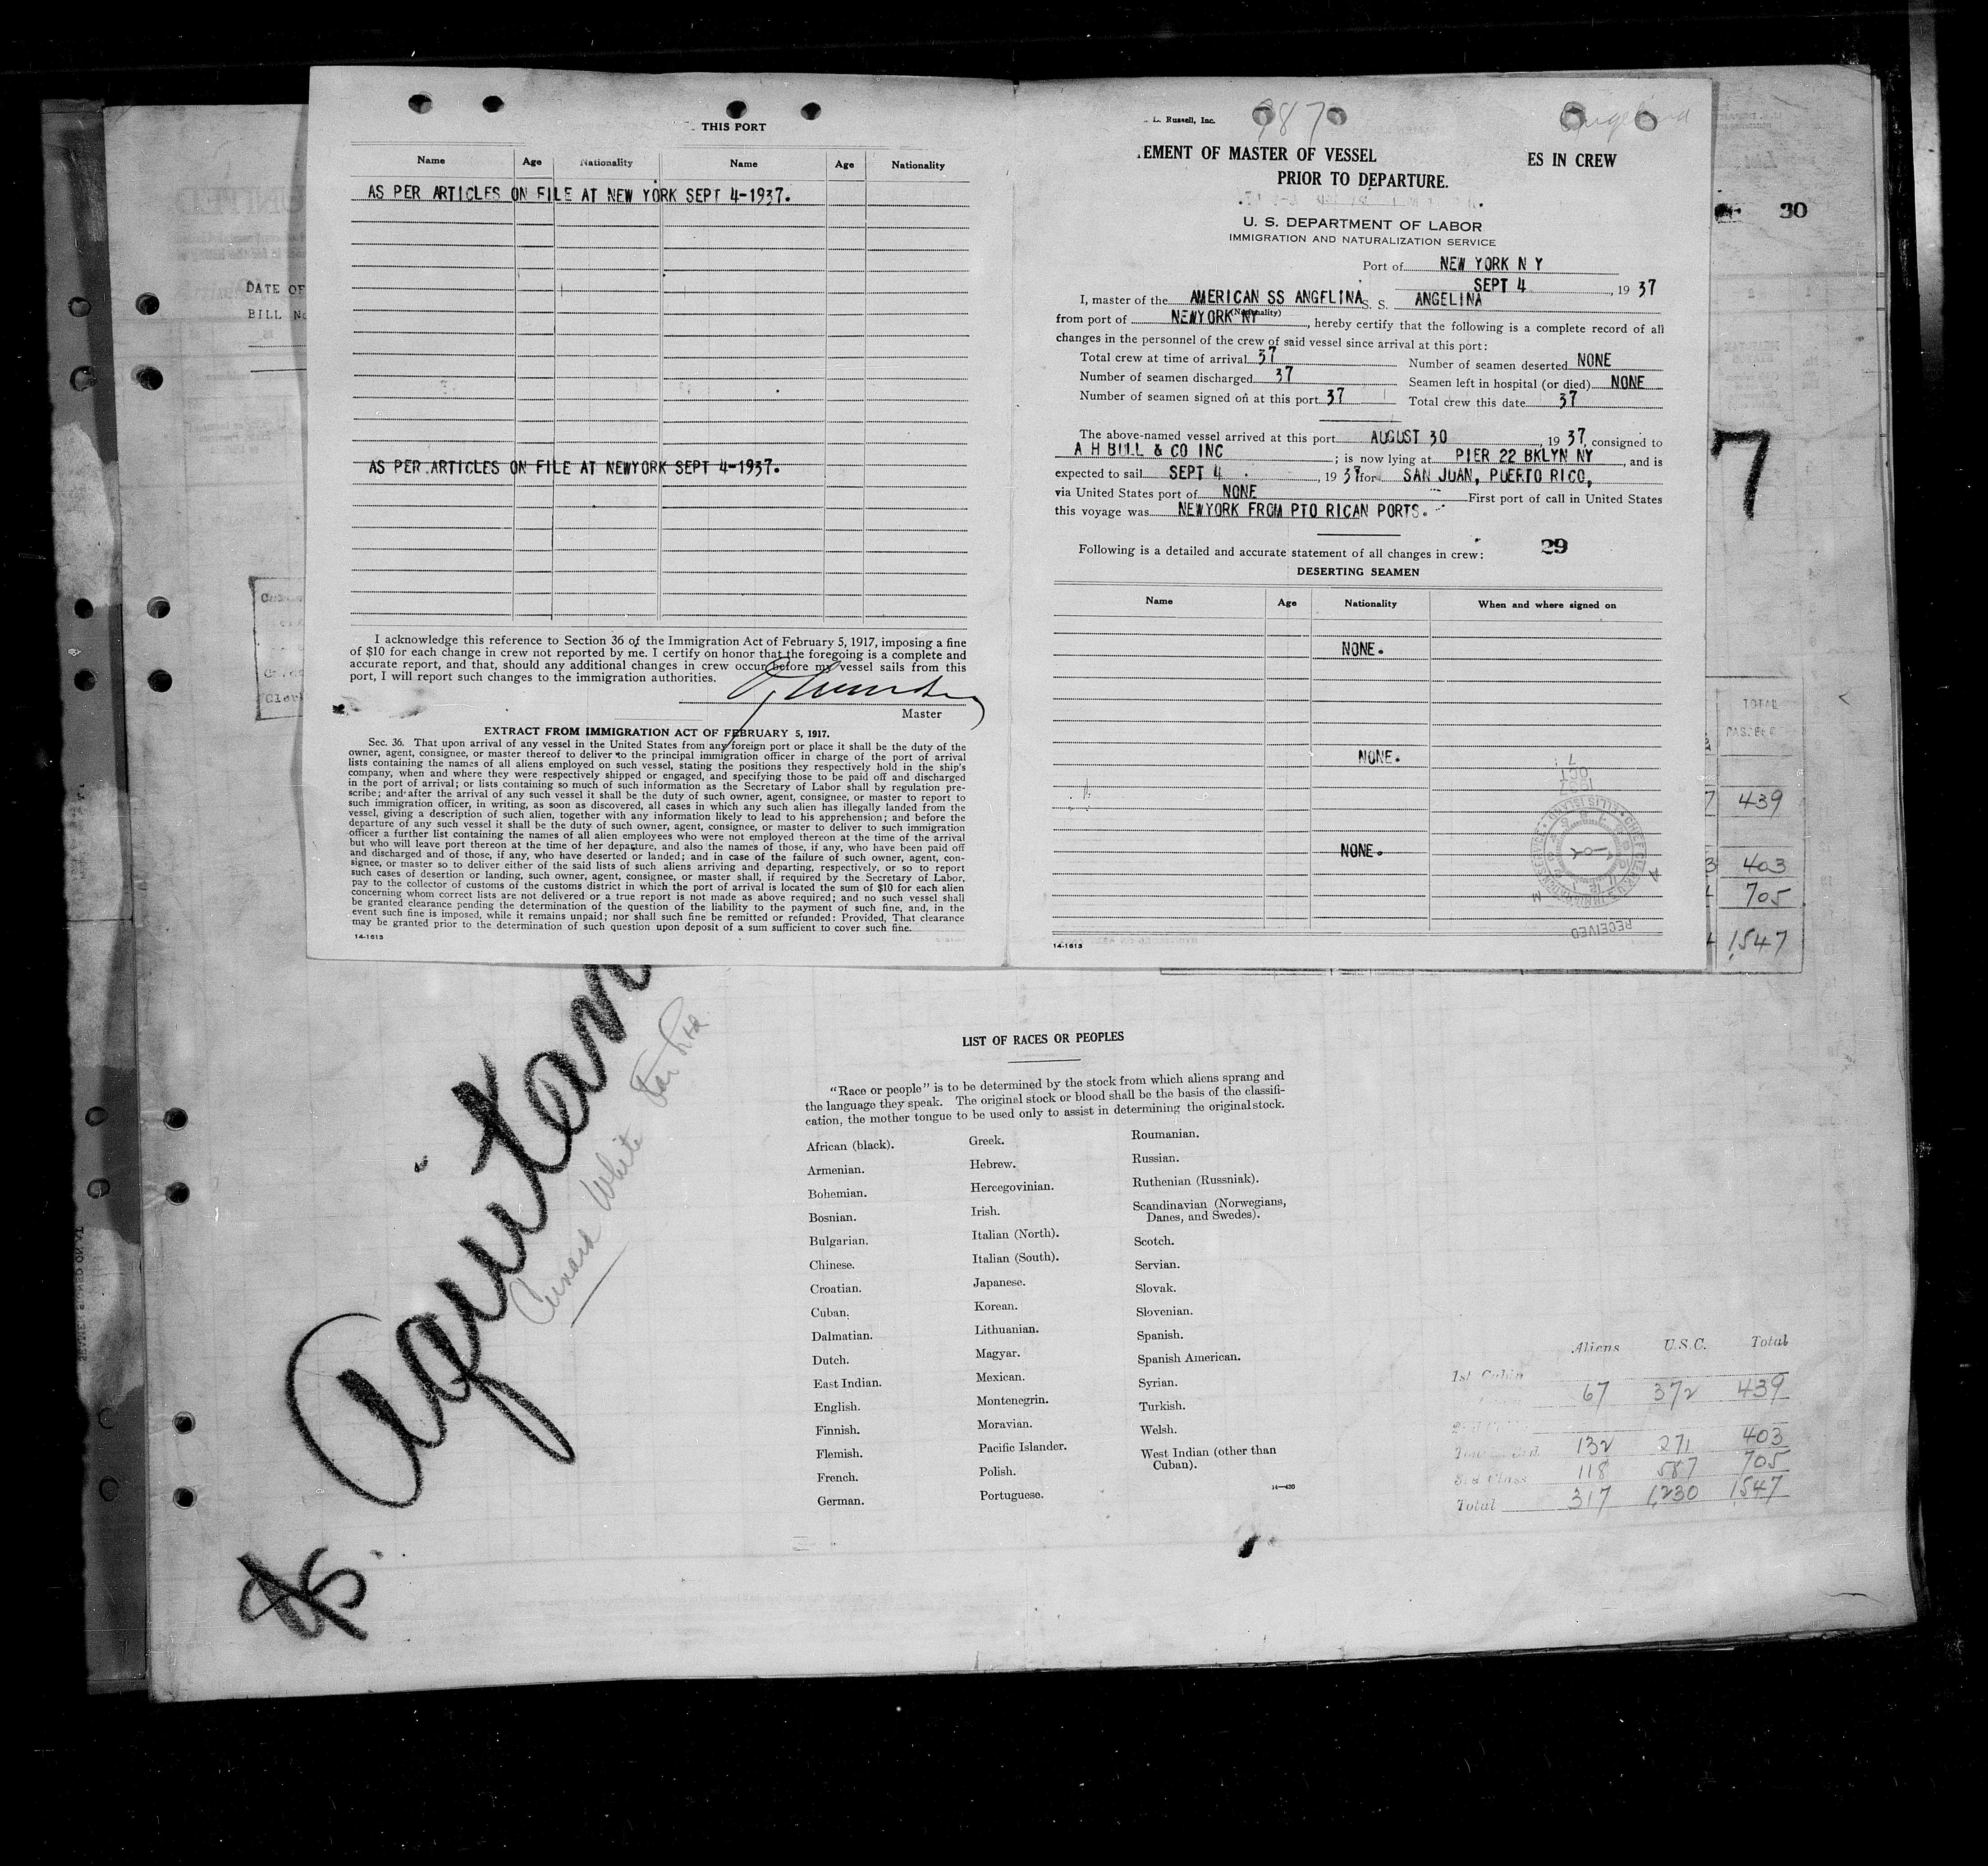 THIS PORT
Name Age Nationality Name Age Nationality
AS PER ARTICLES ON FILE AT NEW YORK SEPT 4-1937.
AS PER ARTICLES ON FILE AT NEWYORK SEPT 4-1937.
I acknowledge this reference to Section 36 of the Immigration Act of February 5, 1917, imposing a fine
of $10 for each change in crew not reported by me. I certify on honor that the foregoing is a complete and
accurate report, and that, should any additional changes in crew occur before my vessel sails from this
port, I will report such changes to the immigration authorities.
Master
EXTRACT FROM IMMIGRATION ACT OF FEBRUARY 5, 1917.
Sec. 36. That upon arrival of any vessel in the United States from any foreign port or place it shall be the duty of the
owner, agent, consignee, or master thereof to deliver to the principal immigration officer in charge of the port of arrival
lists containing the names of all aliens employed on such vessel, stating the positions they respectively hold in the ship's
company, when and where they were respectively shipped or engaged, and specifying those to be paid off and discharged
in the port of arrival; or lists containing so much of such information as the Secretary of Labor shall by regulation pre-
scribe; and after the arrival of any such vessel it shall be the duty of such owner, agent, consignee, or master to report to
such immigration officer, in writing, as soon as discovered, all cases in which any such alien has illegally landed from the
vessel, giving a description of such alien, together with any information likely to lead to his apprehension; and before the
departure of any such vessel it shall be the duty of such owner, agent, consignee, or master to deliver to such immigration
officer a further list containing the names of all alien employees who were not employed thereon at the time of the arrival
but who will leave port thereon at the time of her departure, and also the names of those, if any, who have been paid off
and discharged and of those, if any, who have deserted or landed; and in case of the failure of such owner, agent, con-
signee, or master so to deliver either of the said lists of such aliens arriving and departing, respectively, or so to report
such cases of desertion or landing, such owner, agent, consignee, or master shall, if required by the Secretary of Labor,
pay to the collector of customs of the customs district in which the port of arrival is located the sum of $10 for each alien
concerning whom correct lists are not delivered or a true report is not made as above required; and no such vessel shall
be granted clearance pending the determination of the question of the liability to the payment of such fine, and, in the
event such fine is imposed, while it remains unpaid; nor shall such fine be remitted or refunded: Provided, That clearance
may be granted prior to the determination of such question upon deposit of a sum sufficient to cover such fine.
14-1613
L. Russell, Inc. 987 Angelina
EMENT OF MASTER OF VESSEL ES IN CREW
PRIOR TO DEPARTURE.
U. S. DEPARTMENT OF LABOR
IMMIGRATION AND NATURALIZATION SERVICE
Port of NEW YORK N Y
SEPT 4, 1937
I, master of the AMERICAN SS ANGELINA S. S. ANGELINA
(Nationality)
from port of NEWYORK NY, hereby certify that the following is a complete record of all
changes in the personnel of the crew of said vessel since arrival at this port:
Total crew at time of arrival 37 Number of seamen deserted NONE
Number of seamen discharged 37 Seamen left in hospital (or died) NONE
Number of seamen signed on at this port 37 Total crew this date 37
The above-named vessel arrived at this port AUGUST 30, 1937, consigned to
A H BULL & CO INC; is now lying at PIER 22 BKLYN NY, and is
expected to sail SEPT 4, 1937 for SAN JUAN, PUERTO RICO,
via United States port of NONE First port of call in United States
this voyage was NEWYORK FROM PTO RICAN PORTS.
29
Following is a detailed and accurate statement of all changes in crew:
DESERTING SEAMEN
Name Age Nationality When and where signed on
NONE.
NONE.
NONE.
RECEIVED
14-1613
30
7
DATE OF
BILL No
TOTAL
439
403
705
1,547
Aquitan
Cunard White Star
SS.
LIST OF RACES OR PEOPLES
"Race or people" is to be determined by the stock from which aliens sprang and
the language they speak. The original stock or blood shall be the basis of the classifi-
cation, the mother tongue to be used only to assist in determining the original stock.
African (black).
Armenian.
Bohemian.
Bosnian.
Bulgarian.
Chinese.
Croatian.
Cuban.
Dalmatian.
Dutch.
East Indian.
English.
Finnish.
Flemish.
French.
German.
Greek.
Hebrew.
Hercegovinian.
Irish.
Italian (North).
Italian (South).
Japanese.
Korean.
Lithuanian.
Magyar.
Mexican.
Montenegrin.
Moravian.
Pacific Islander.
Polish.
Portuguese.
Roumanian.
Russian.
Ruthenian (Russniak).
Scandinavian (Norwegians,
Danes, and Swedes).
Scotch.
Servian.
Slovak.
Slovenian.
Spanish.
Spanish American.
Syrian.
Turkish.
Welsh.
West Indian (other than
Cuban).
14—430
Aliens U.S.C. Total
1st Cabin 67 372 439
132 271 403
3rd Class 118 587 705
Total 317 1,230 1,547